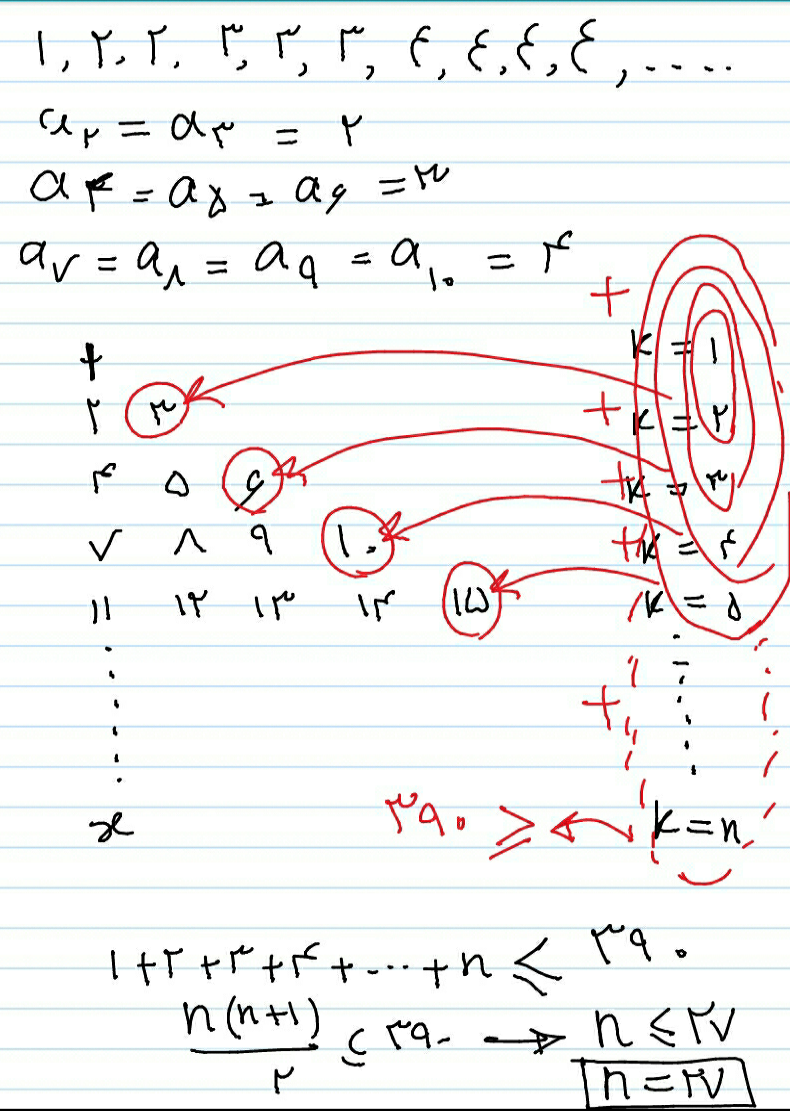 ۱, ۲, ۲, ۳, ۳, ۳, ۴, ۴, ۴, ۴, ....
a۲ = a۳ = ۲
a۴ = a۵ = a۶ = ۳
a۷ = a۸ = a۹ = a۱۰ = ۴
۱ + k = ۱
۲ ۳ + k = ۲
۴ ۵ ۶ + k = ۳
۷ ۸ ۹ ۱۰ + k = ۴
۱۱ ۱۲ ۱۳ ۱۴ ۱۵ k = ۵
+
x ۳۹۰ ≥ k = n
۱ + ۲ + ۳ + ۴ + ... + n ≤ ۳۹۰
n(n+1)/۲ ≤ ۳۹۰ → n ≤ ۲۷
n = ۲۷